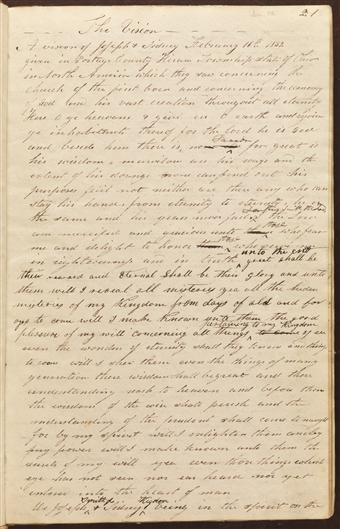 21
The Vision
A vision of Joseph & Sidney February 16th 1832
given in Portage County Hiram Township State of Ohio
in North America which they saw concerning the
church of the first born and concerning the economy
of God and his vast creation throughout all eternity
Hear O ye heavens & give ear O earth and rejoice
ye inhabitants thereof for the Lord he is God
and beside him there is no Savior for great is
his wisdom marvilous are his ways and the
extent of his doings none can find out his
purposes fail not neither are there any who can
stay his hand from eternity to eternity he is
the same and his years never fail
am mercifull and gracious unto those who fear
me and delight to honor those who serve me
in righteousness and in truth unto the end
their reward and Eternal Shall be their glory and unto
great shall be
them will I reveal all misteries yea all the hiden
misteries of my Kingdom from days of old and for
ages to come will I make known unto them the good
pleasure of my will concerning all things
pertaining to my Kingdom
yea even the wonders of eternity shall they know and things
to come will I shew them even the things of many
generations their wisdom shall be great and their
understanding reach to heaven and before them
the wisdom of the wise shall perish and the
understanding of the prudent shall come to naught
for by my spirit will I enlighten them and by
my power will I make known unto them the
secrets of my will yea even those things which
eye has not seen nor ear heard nor yet
entered into the heart of man
We Joseph & Sidney being in the spirit on the